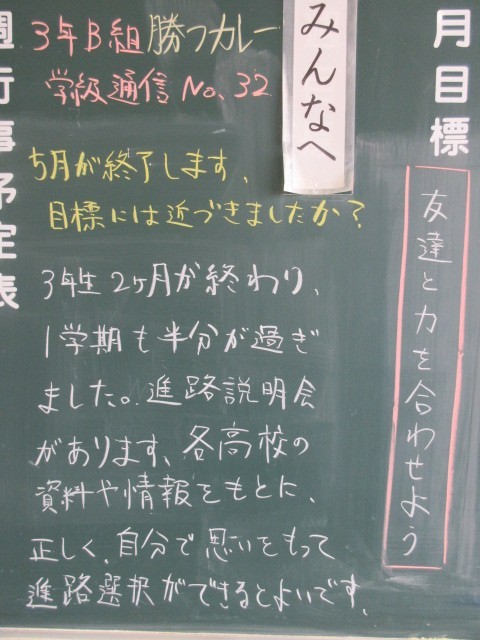 月目標
友達と力を合わせよう
みんなへ
3年B組 勝つカレー
学級通信 No、32
5月が終了します、
目標には近づきましたか?
3年生 2ヶ月が終わり、
1学期も半分が過ぎ
ました。進路説明会
があります、各高校の
資料や情報をもとに、
正しく、自分で思いをもって
進路選択ができるとよいです、
週行事予定表